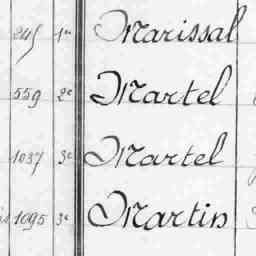 245 1e Marissal
559 2e Martel
1037 3e Martel
1095 3e Martin